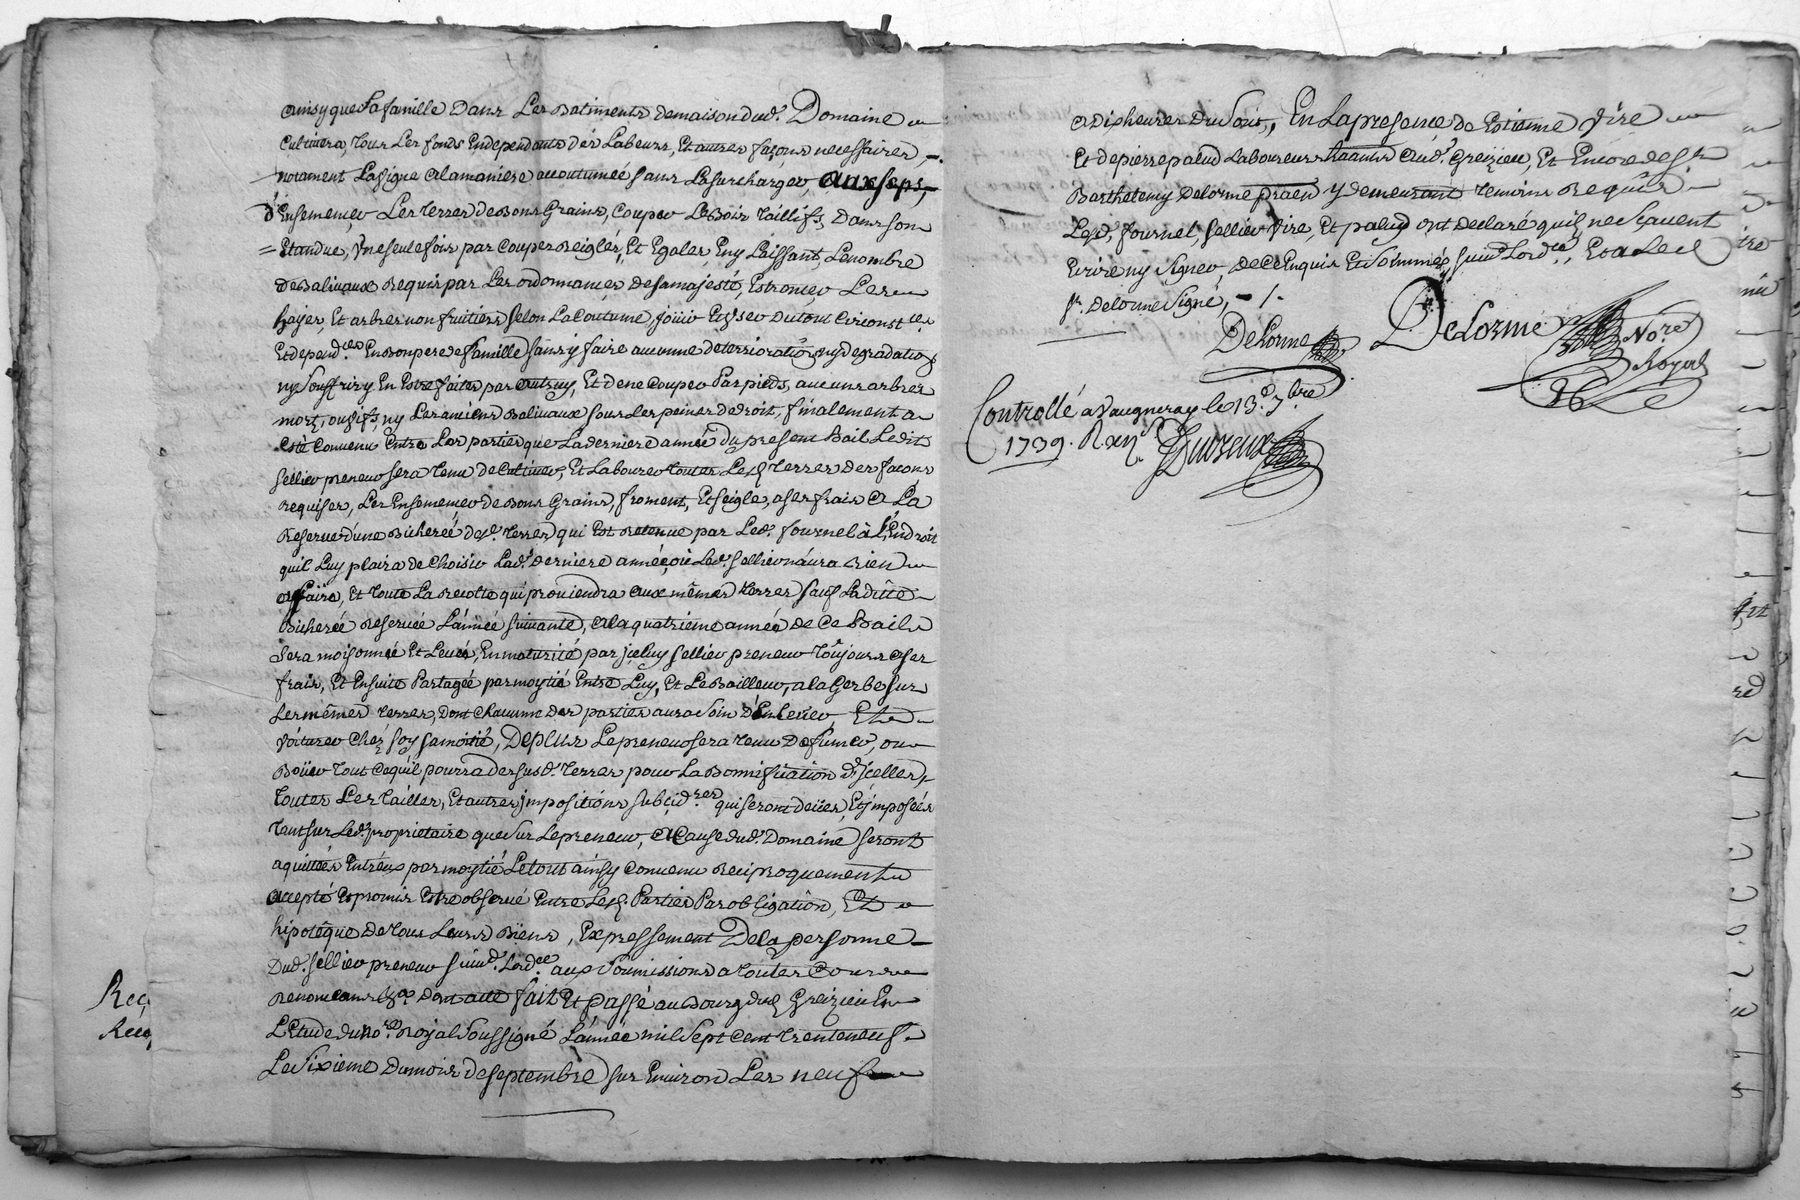 ainsy que sa famille Dans Les Batiments de maison dud. Domaine
Cultivera, Tous Les fonds En dependants des Labeurs, Et autres façons necessaires,
notament La Vigne a la maniere accoutumée sans La surcharger, aux seps,
d'Ensemencer Les Terres de Bons Grains, Couper Le Bois Taillifs, Dans son
Etandue, Vne seule fois par Coupes Reiglés, Et Egales, En y Laissant, Le nombre
de Balivaux Requis par Les ordonnances de sa majesté, Estroncer Les
hayes, Et arbres non fruitiers selon La Coutume, jouir Et Vser du tout Circonst.ces
Et depend.ces En Bon pere de famille sans y faire aucunne deterioration, ny degradation
ny souffrir y En Estre faites par autruy, Et de ne Couper Par pieds, aucuns arbres
morts, ou vifs, ny Les anciens Balivaux sous Les peines de droit, finalement a
Esté Convenu Entre Les parties que La derniere année du present Bail Ledit
sellier preneur sera Tenu de Cultiver, Et Labourer toutes Lesd. Terres des façons
requises, Les Ensemencer de Bons Grains, froment, Et seigle, a ses frais a La
Reserve d'une Bicherée desd. Terres qui Est Retenue par Led. fournel à L'Endroit
quil Luy plaira de Choisir Lad. derniere année, où Led. sellier n'aura Rien
affaire, Et toute La recolte qui proviendra aux mêmes terres sauf Laditte
Bicherée Reservée L'année suivante, a la quatrieme année de Ce Bail
sera moisonnée Et Levée, En maturité par jceluy sellier preneur toujours a ses
frais, Et Ensuite Partagée par moytié Entre Luy, Et Le Bailleur, a la Gerbe sur
Les mêmes terres, dont Chacunne Des parties aura soin d'Enlever, Et
Voiturer Chez soy sa moitié, De plus Le preneur sera tenu De fumer, ou
Boüer tout Ce qu'il pourra dessusd. terres pour La Bonnification d'jcelles,
toutes Les Tailles, Et autres jmpositions subcid.res qui seront deües, Et jmposées
tant sur Led. proprietaire que sur Le preneur, a Cause dud. Domaine seront
aquittées Entréux par moytié Le tout ainsy Convenu Reciproquement
accepté Et promis Estre observé Entre Lesd. Parties Par obligation, Et
hipotêque De tous Leurs Biens, Expressement De la personne
Dud. sellier preneur suiv.d Lord.ce aux soumissions a toutes Cours
Renoncans &.a Dont acte fait Et passé au Bourg dud. Greizieu En
L'Etude du no.re Royal soussigné L'année mil sept Cent trente neuf
Le sixieme Du mois de septembre sur Environ Les neuf
a dix heures Du soir, En La presence de Estienne Vire
Et de pierre palud Laboureurs haants aud. Greizieu, Et Encore de s.r
Barthelemy Delorme praen y demeurant temoins Requis
Lesd. fournel, sellier Vire, Et palud ont declaré quils ne sçauent
Ecrire ny signer, de Ce Enquis Et sommés suiv.d Lord.ce, Et a Led.
s.r Delorme signé,
Delorme Delorme No.re
Royal
Controllé a Vaugneray le 13.e 7.bre
1739. R